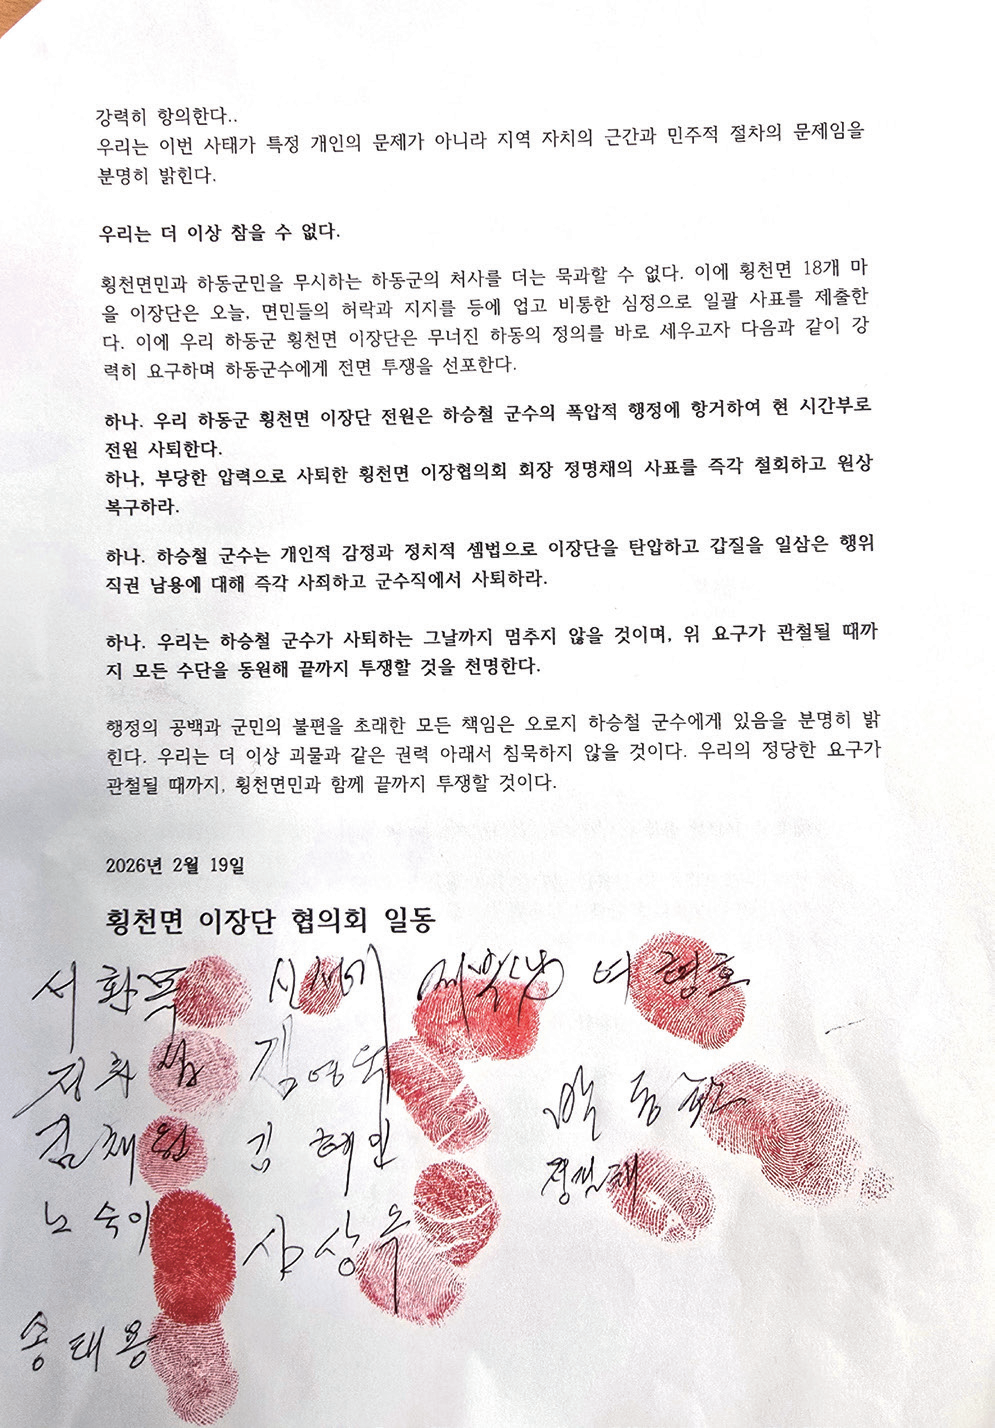 강력히 항의한다..
우리는 이번 사태가 특정 개인의 문제가 아니라 지역 자치의 근간과 민주적 절차의 문제임을
분명히 밝힌다.
우리는 더 이상 참을 수 없다.
횡천면민과 하동군민을 무시하는 하동군의 처사를 더는 묵과할 수 없다. 이에 횡천면 18개 마
을 이장단은 오늘, 면민들의 허락과 지지를 등에 업고 비통한 심정으로 일괄 사표를 제출한
다. 이에 우리 하동군 횡천면 이장단은 무너진 하동의 정의를 바로 세우고자 다음과 같이 강
력히 요구하며 하동군수에게 전면 투쟁을 선포한다.
하나. 우리 하동군 횡천면 이장단 전원은 하승철 군수의 폭압적 행정에 항거하여 현 시간부로
전원 사퇴한다.
하나, 부당한 압력으로 사퇴한 횡천면 이장협의회 회장 정명채의 사표를 즉각 철회하고 원상
복구하라.
하나. 하승철 군수는 개인적 감정과 정치적 셈법으로 이장단을 탄압하고 갑질을 일삼은 행위
직권 남용에 대해 즉각 사죄하고 군수직에서 사퇴하라.
하나. 우리는 하승철 군수가 사퇴하는 그날까지 멈추지 않을 것이며, 위 요구가 관철될 때까
지 모든 수단을 동원해 끝까지 투쟁할 것을 천명한다.
행정의 공백과 군민의 불편을 초래한 모든 책임은 오로지 하승철 군수에게 있음을 분명히 밝
힌다. 우리는 더 이상 괴물과 같은 권력 아래서 침묵하지 않을 것이다. 우리의 정당한 요구가
관철될 때까지, 횡천면민과 함께 끝까지 투쟁할 것이다.
2026년 2월 19일
횡천면 이장단 협의회 일동
김채원 김혜민
노숙이
송태용